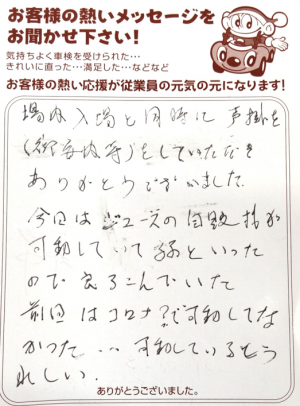 お客様の熱いメッセージを
お聞かせ下さい!
気持ちよく車検を受けられた…
きれいに直った…満足した…などなど
お客様の熱い応援が従業員の元気の元になります!
場内入場と同時に声掛を
(御案内等)をしていただき
ありがとうございました
今回はジュースの自販機が
可動していて
ので喜こんでいた
前回はコロナ?で可動してな
かった… 可動しているとう
れしい.
ありがとうございました。